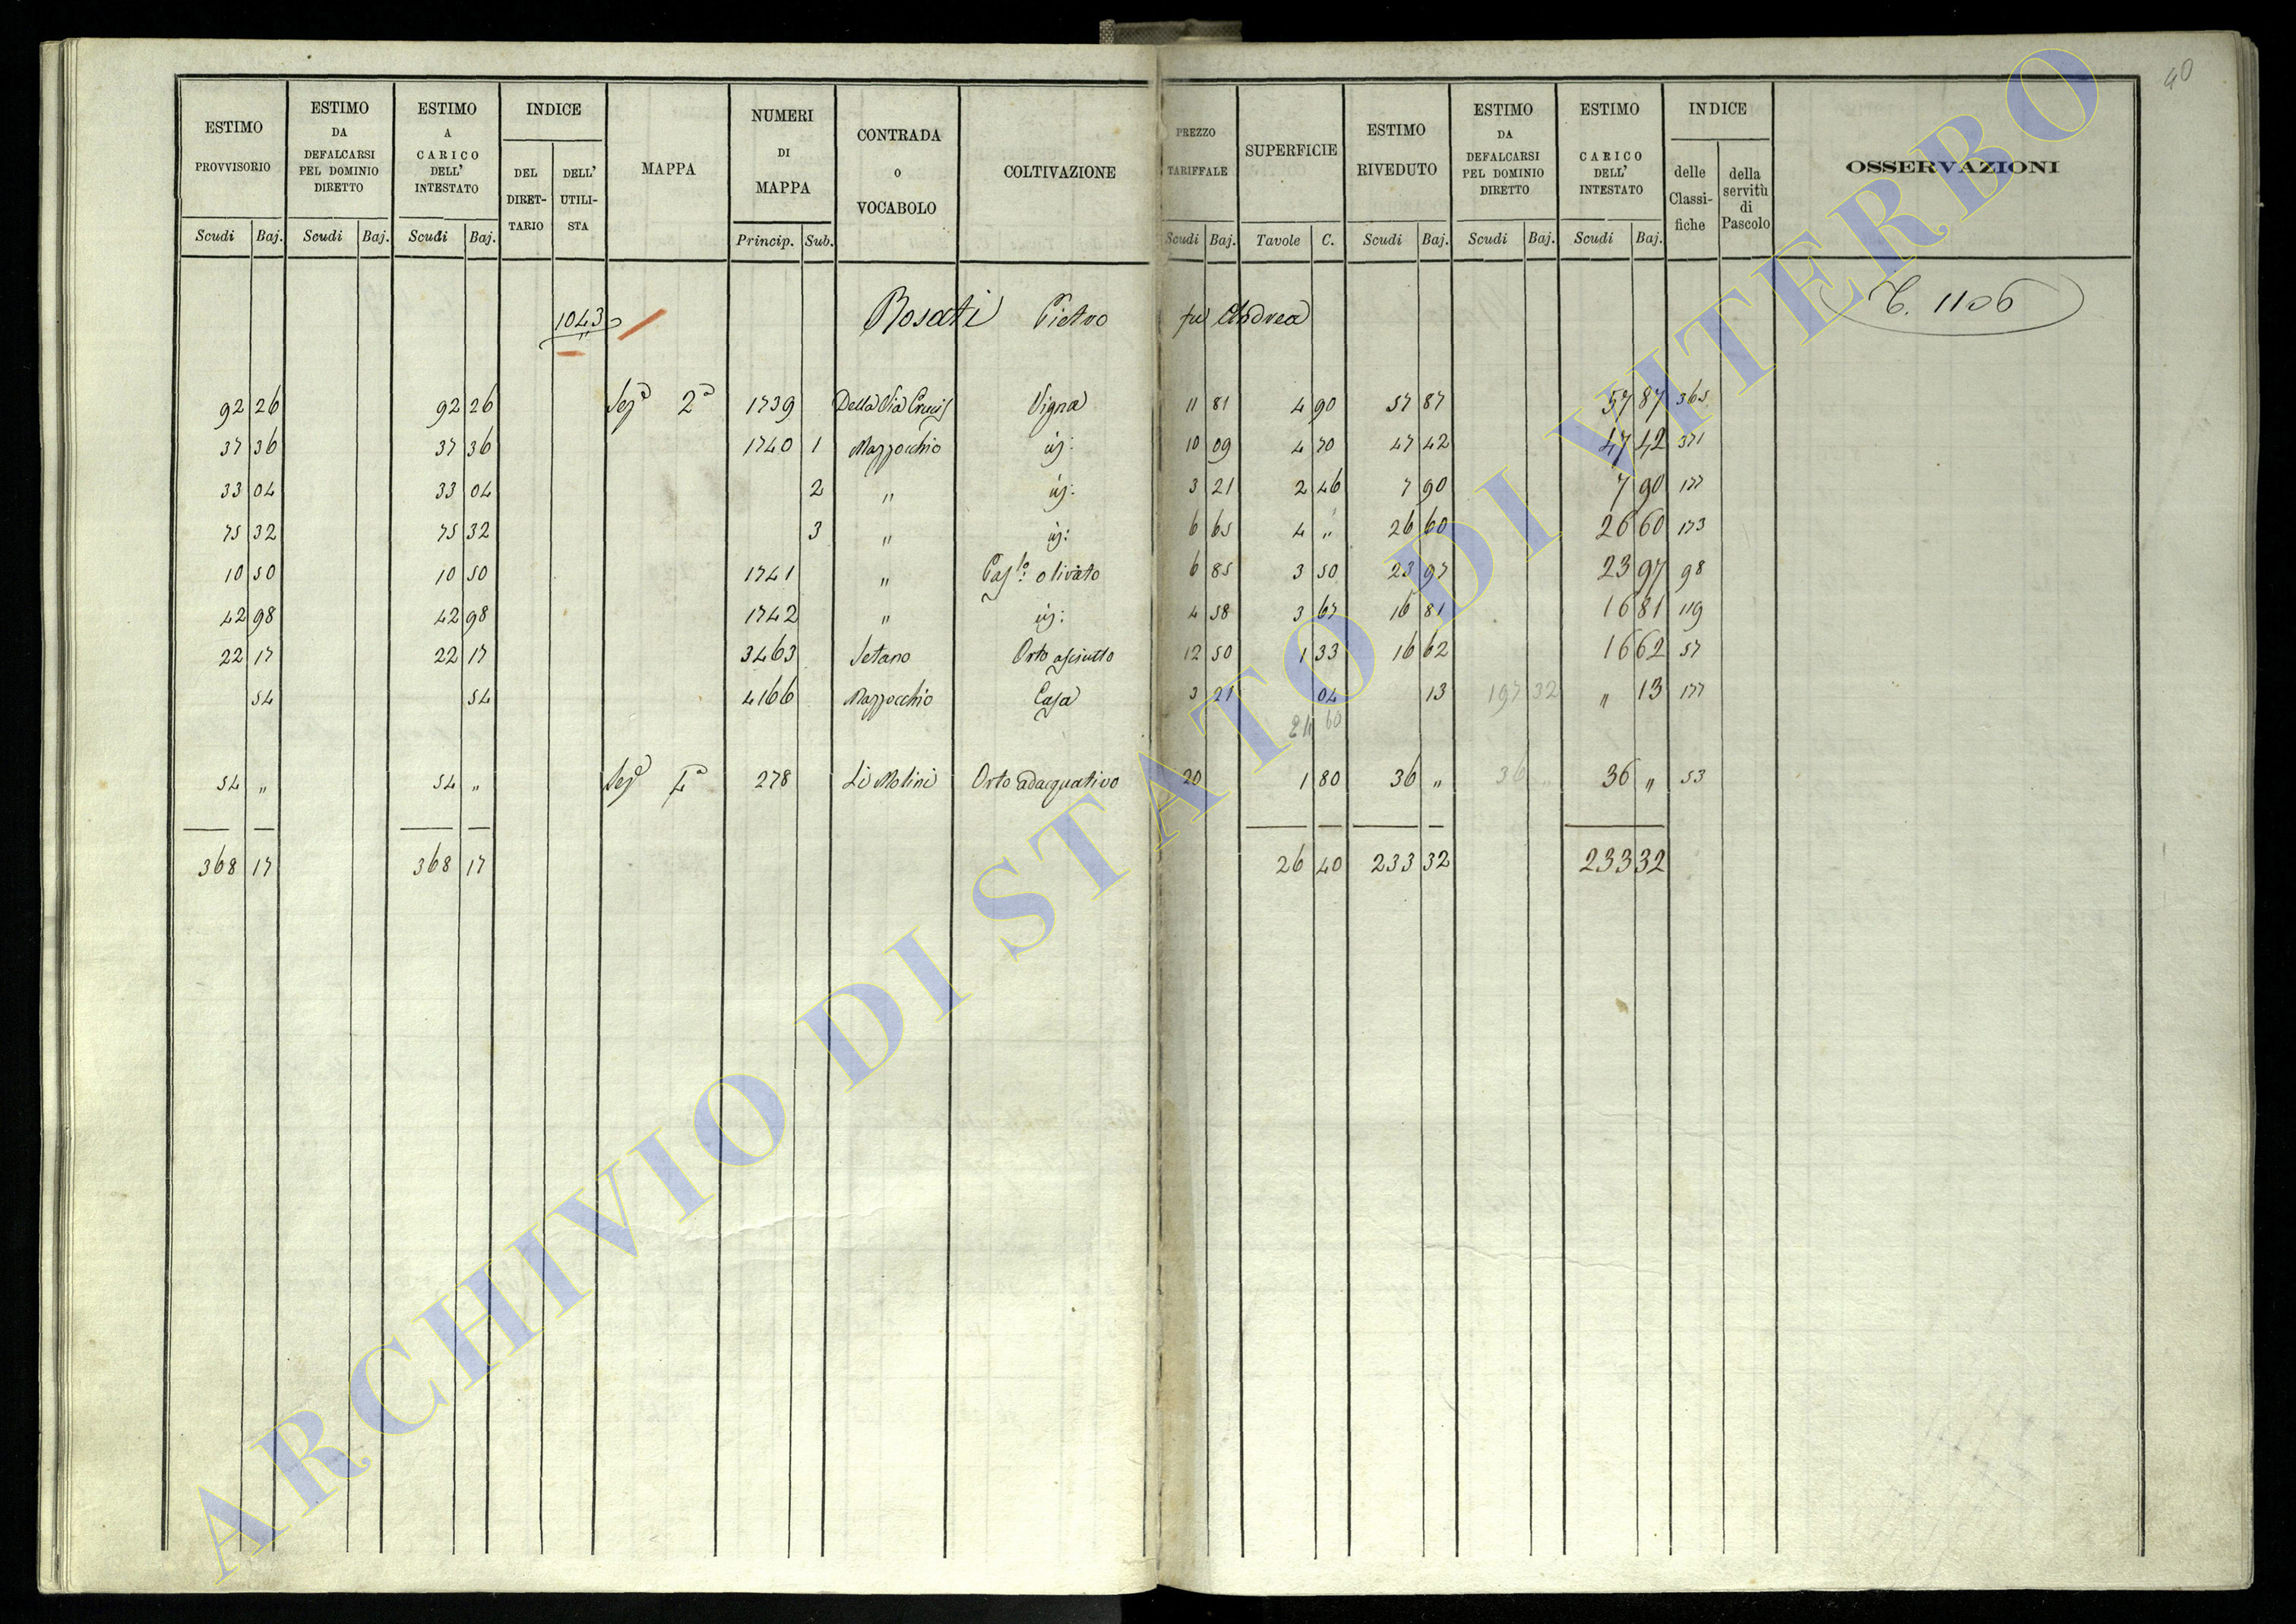 40
ESTIMO PROVVISORIO | ESTIMO DA DEFALCARSI PEL DOMINIO DIRETTO | ESTIMO A CARICO DELL' INTESTATO | INDICE | MAPPA | NUMERI DI MAPPA | CONTRADA O VOCABOLO | COLTIVAZIONE | PREZZO TARIFFALE | SUPERFICIE | ESTIMO RIVEDUTO | ESTIMO DA DEFALCARSI PEL DOMINIO DIRETTO | ESTIMO A CARICO DELL' INTESTATO | INDICE | OSSERVAZIONI
DEL DIRETTARIO | DELL' UTILISTA | delle Classifiche | della servitù di Pascolo
Scudi Baj. | Scudi Baj. | Scudi Baj. | Princip. Sub. | Scudi Baj. | Tavole C. | Scudi Baj. | Scudi Baj. | Scudi Baj.
1043 Rosati Pietro fu Andrea 1106
92 26 | 92 26 | Sez.a 2a | 1739 | Della Via Crucis | Vigna | 11 81 | 4 90 | 57 87 | 57 87 | 365
37 36 | 37 36 | 1740 1 | Mazzocchio | id: | 10 09 | 4 70 | 47 42 | 47 42 | 371
33 04 | 33 04 | 2 | " | id: | 3 21 | 2 46 | 7 90 | 7 90 | 177
75 32 | 75 32 | 3 | " | id: | 6 65 | 4 " | 26 60 | 26 60 | 173
10 50 | 10 50 | 1741 | " | Pas.lo: olivato | 6 85 | 3 50 | 23 97 | 23 97 | 98
42 98 | 42 98 | 1742 | " | id: | 4 58 | 3 67 | 16 81 | 16 81 | 119
22 17 | 22 17 | 3463 | Setano | Orto asciutto | 12 50 | 1 33 | 16 62 | 16 62 | 57
54 | 54 | 4166 | Mazzocchio | Casa | 3 21 | 04 | 13 | 197 32 | " 13 | 177
60
54 " | 54 " | Sez.a 4a | 278 | Li Molini | Orto adacquativo | 20 | 1 80 | 36 " | 36 " | 36 " | 53
368 17 | 368 17 | 26 40 | 233 32 | 233 32
ARCHIVIO DI STATO DI VITERBO